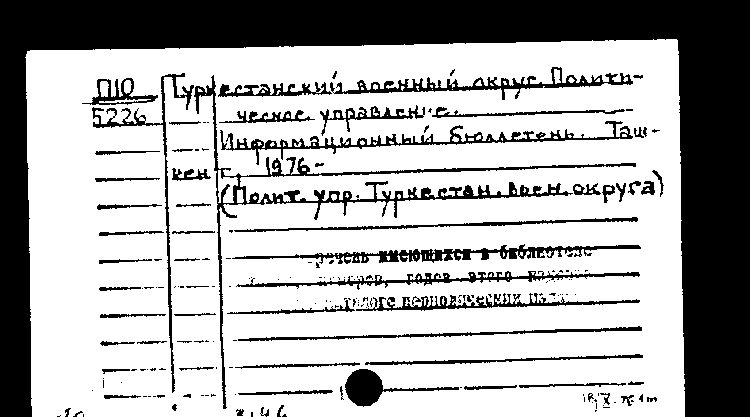 П10 Туркестанский военный округ. Полити-
5226 ческое управление.
Информационный бюллетень. Таш-
кент, 1976-
(Полит. упр. Туркестан. воен. округа)
речень имеющихся в библиотеке
номеров, годов этого
каталоге периодических